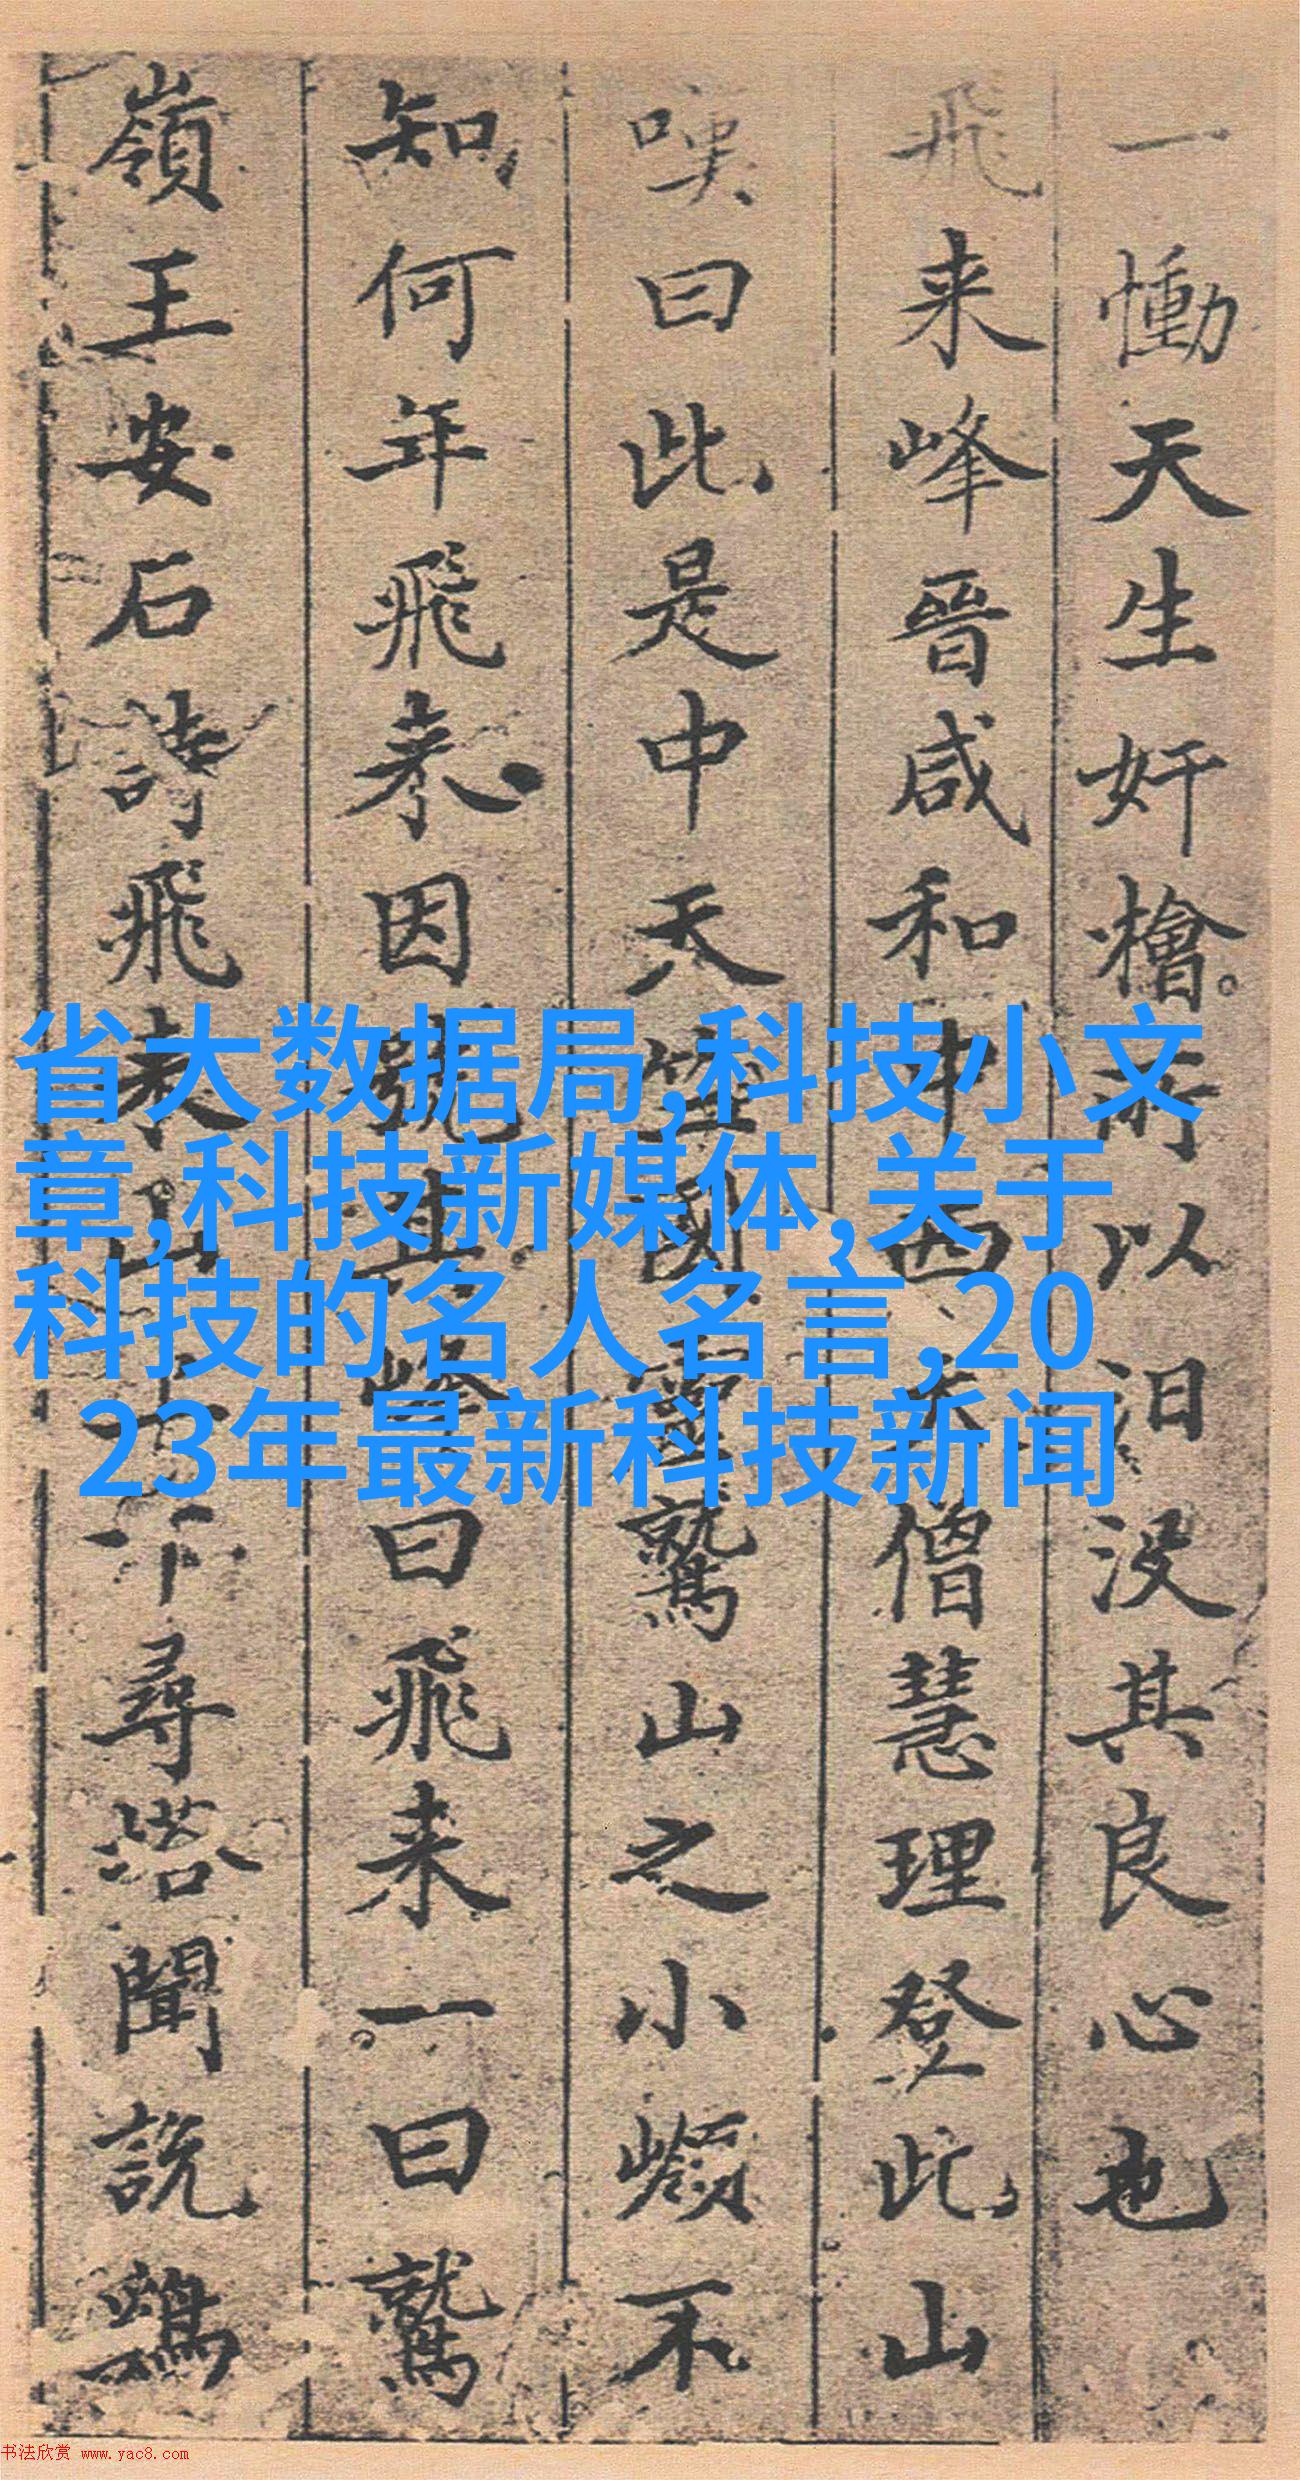 一慟天生奸檜所以汨没其良心也
飛来峰晉咸和中西天僧慧理登此山
嘆曰此是中天竺國靈鷲山之小嶺不
知何年飛来因號其峰曰飛来一曰鷲
嶺王安石詩飛来山上千尋塔聞說鷄
省大数据局,科技小文
章,科技新媒体,关于
科技的名人名言,20
23年最新科技新闻
书法欣赏 www.yac8.com